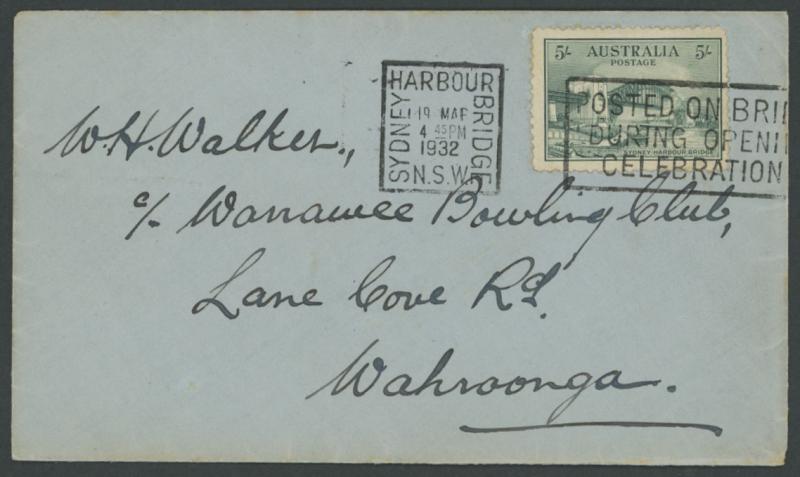 5/- AUSTRALIA 5/-
POSTAGE
SYDNEY HARBOUR BRIDGE
SYDNEY
HARBOUR
BRIDGE
19 MAR
4 45 PM
1932
N.S.W.
POSTED ON BRI
DURING OPENI
CELEBRATION
W.H. Walker.,
c/- Warrawee Bowling Club,
Lane Cove Rd.
Wahroonga.